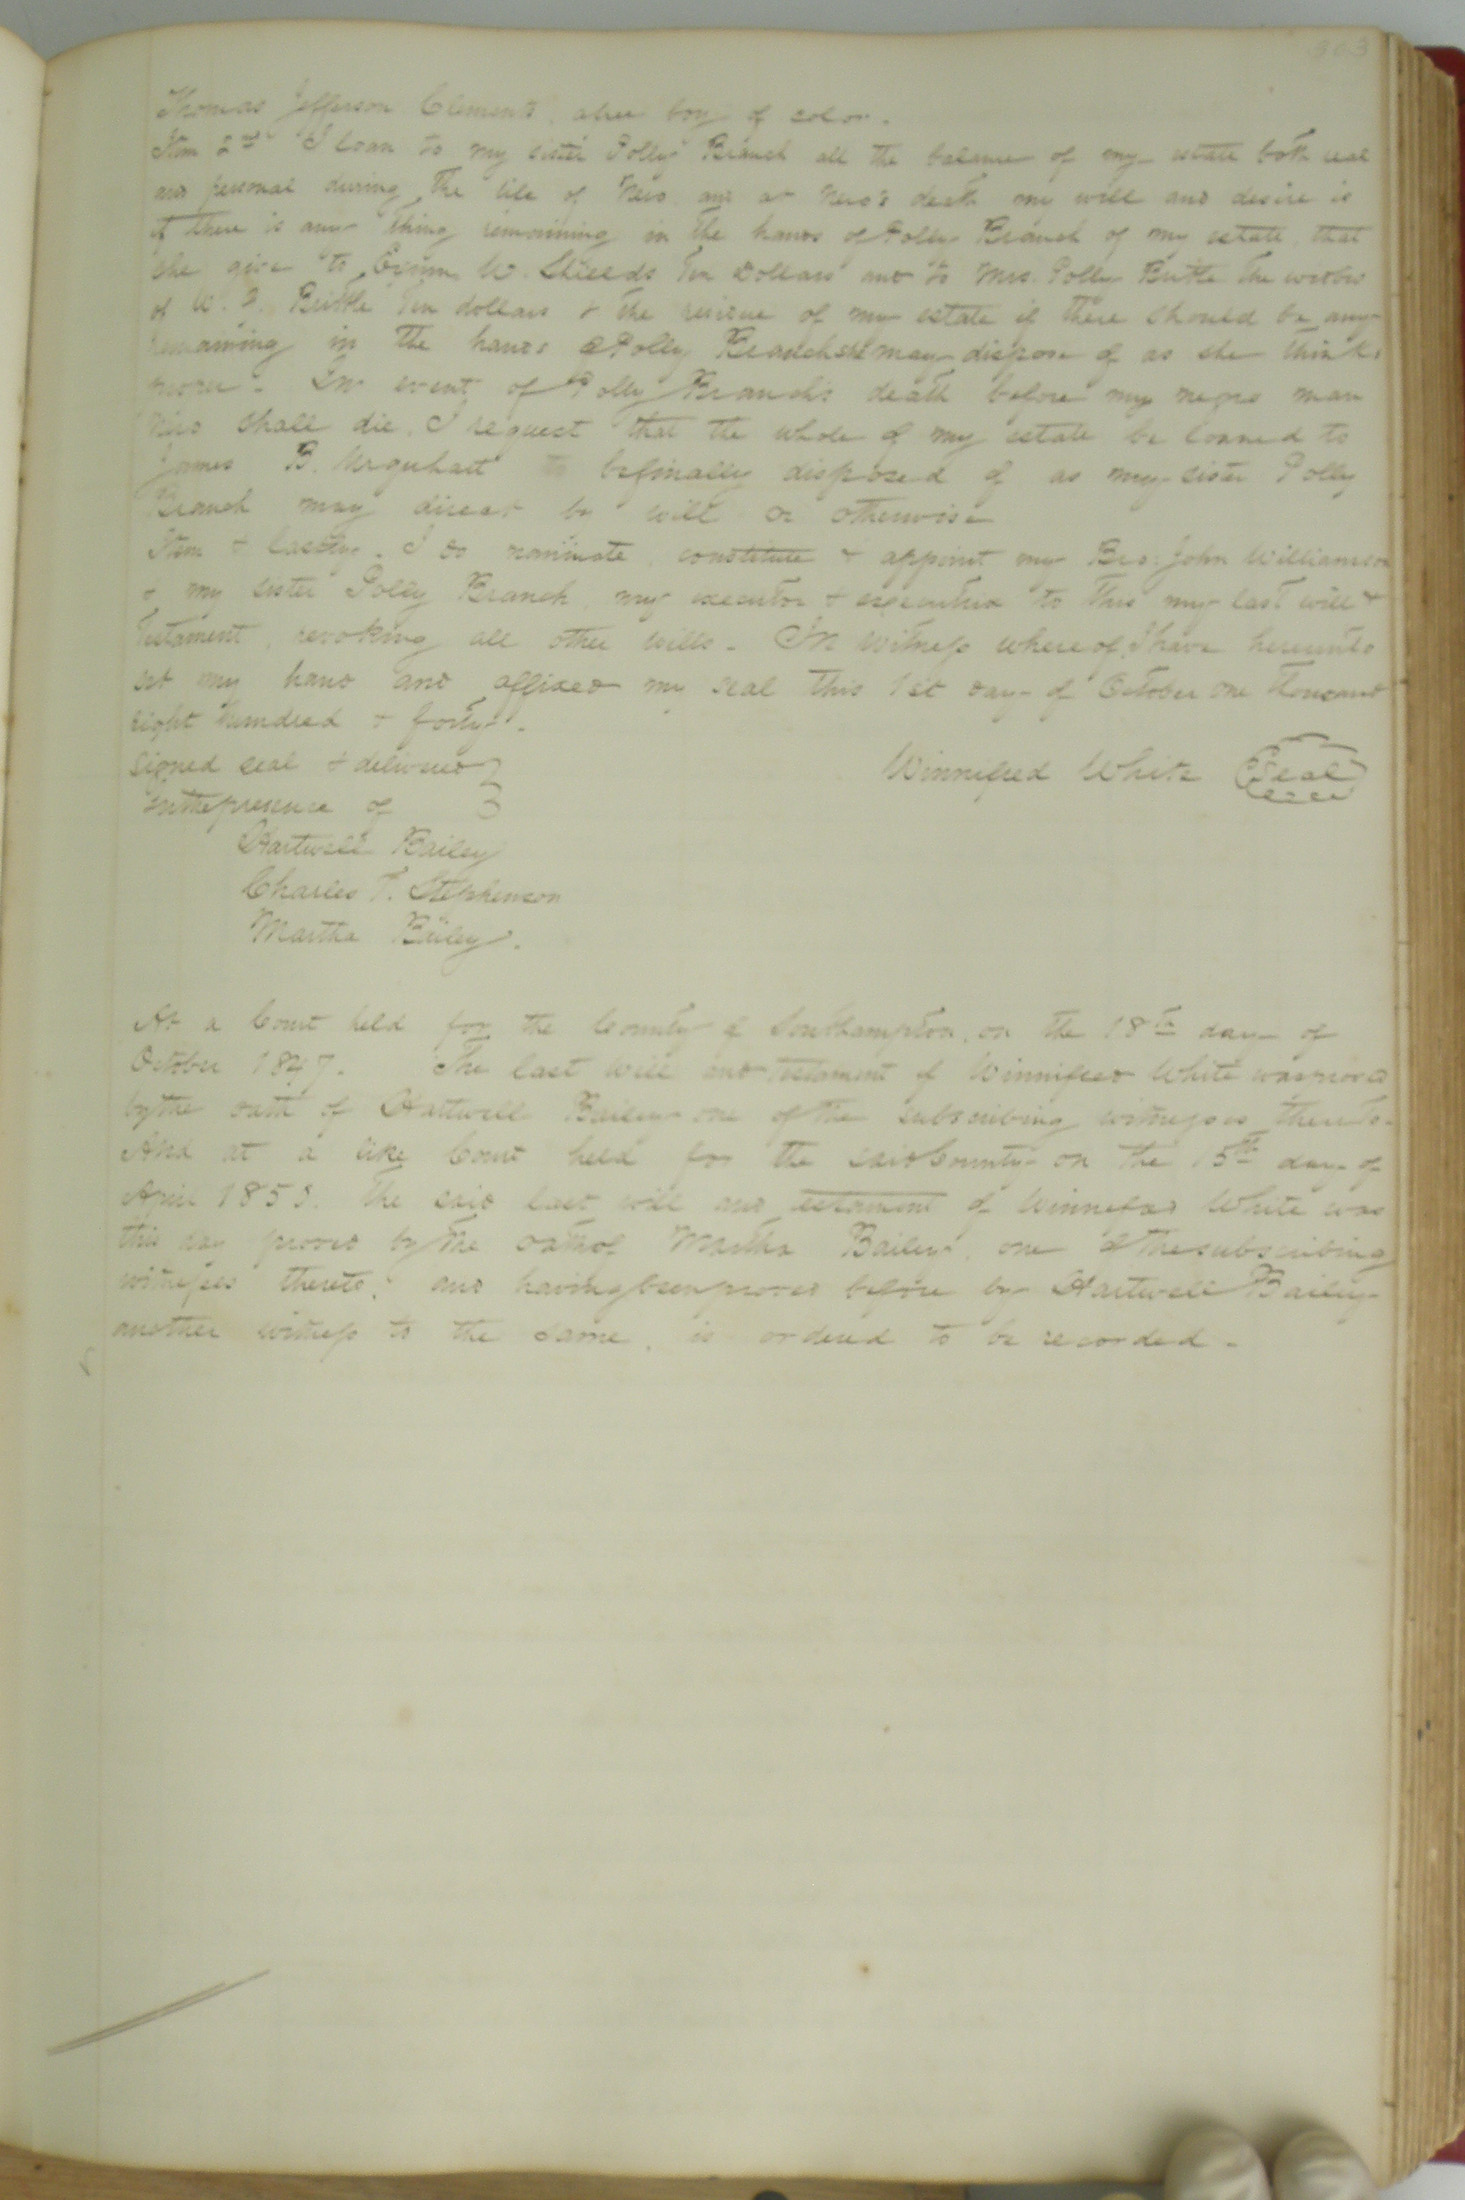 303
Thomas Jefferson Clements, a free boy of color.
Item 2nd I loan to my sister Polly Branch all the balance of my estate both real
and personal during the life of Nero and at Nero's death my will and desire is
if there is any thing remaining in the hands of Polly Branch of my estate, that
she give to W. Shields Ten Dollars and to Mrs. Polly Brittle the widow
of W. Brittle Ten dollars & the residue of my estate if there should be any
remaining in the hands of Polly Branch she may dispose of as she thinks
proper. In event of Polly Branch's death before my negro man
Nero shall die, I request that the whole of my estate be loaned to
James B. Urquhart to be finally disposed of as my sister Polly
Branch may direct by will or otherwise
Item & lastly. I do nominate, constitute & appoint my Bro: John Williamson
& my sister Polly Branch, my executor & executrix to this my last will &
Testament, revoking all other wills. In witness whereof, I have hereunto
set my hand and affixed my seal this 1st day of October one thousand
eight hundred & forty.
Signed seal & delivered
in the presence of
Winnifred White Seal
Hartwell Bailey
Charles T. Stephenson
Martha Bailey.
At a Court held for the County of Southampton, on the 18th day of
October 1847. The last will and testament of Winnifred White was proved
by the oath of Hartwell Bailey one of the subscribing witnesses thereto.
And at a like Court held for the said County on the 15th day of
April The said last will and testament of Winnifred White was
this day proved by the oath of Martha Bailey, one of the subscribing
witnesses thereto, and having been proved before by Hartwell Bailey
another witness to the same, is ordered to be recorded.